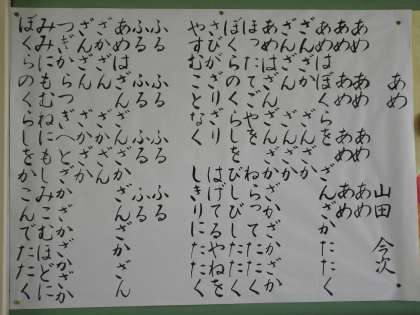 あめ 山田 今次
あめ あめ あめ あめ
あめ あめ あめ あめ
あめはぼくらを ざんざかたたく
ざんざか ざんざか
ざんざん ざかざか
あめはざんざん ざかざかざかざか
ほったてごやを ねらってたたく
ぼくらのくらしを びしびしたたく
さびがざりざり はげてるやねを
やすむことなく しきりにたたく
ふる ふる ふる ふる
ふる ふる ふる ふる
あめはざんざん ざかざんざかざん
ざかざん ざかざん
ざんざん ざかざか
つぎからつぎへと ざかざかざかざか
みみにもむねにも しみこむほどに
ぼくらのくらしを かこんでたたく